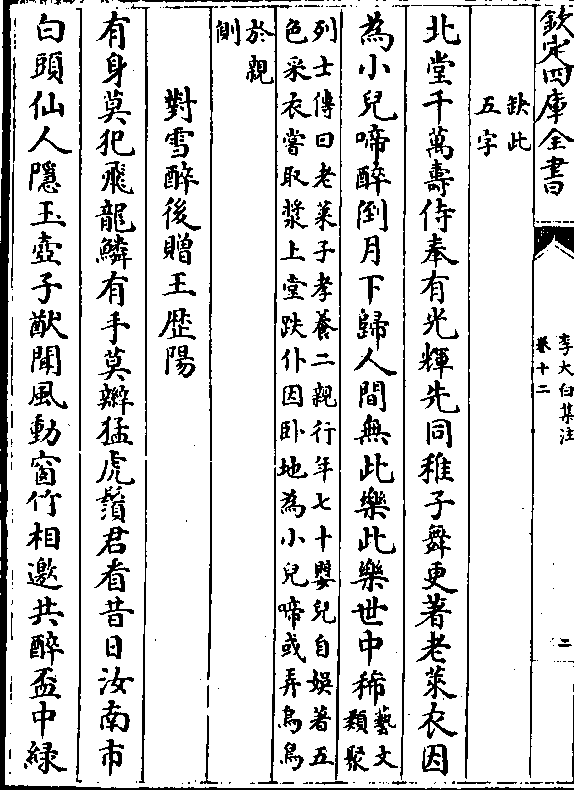 欽定四庫全書
李太白集注
卷十二
二
缺此
五字
北堂千萬壽侍奉有光輝先同稚子舞更著老萊衣因
為小兒啼醉倒月下歸人間無此樂此樂世中稀
藝文
類聚
列士傳曰老萊子孝養二親行年七十嬰兒自娛著五
色采衣嘗取漿上堂跌仆因卧地為小兒啼或弄烏鳥
於親
側
對雪醉後贈王歴陽
有身莫犯飛龍鱗有手莫辮猛虎鬚君看昔日汝南市
白頭仙人隱玉壺子猷聞風動窗竹相邀共醉盃中緑